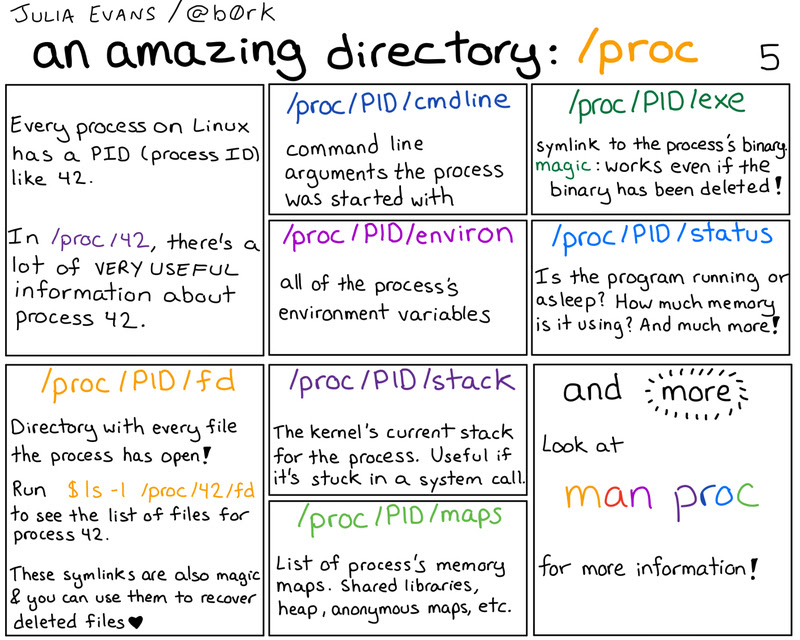 JULIA EVANS / @b0rk
an amazing directory: /proc
5
Every process on Linux
has a PID (process ID)
like 42.
In /proc/42, there's a
lot of VERY USEFUL
information about
process 42.
/proc/PID/cmdline
command line
arguments the process
was started with
/proc/PID/exe
symlink to the process's binary.
magic: works even if the
binary has been deleted!
/proc/PID/environ
all of the process's
environment variables
/proc/PID/status
Is the program running or
asleep? How much memory
is it using? And much more!
/proc/PID/fd
Directory with every file
the process has open!
Run $ ls -l /proc/42/fd
to see the list of files for
process 42.
These symlinks are also magic
& you can use them to recover
deleted files ♥
/proc/PID/stack
The kernel's current stack
for the process. Useful if
it's stuck in a system call.
/proc/PID/maps
List of process's memory
maps. Shared libraries,
heap, anonymous maps, etc.
and more
Look at
man proc
for more information!